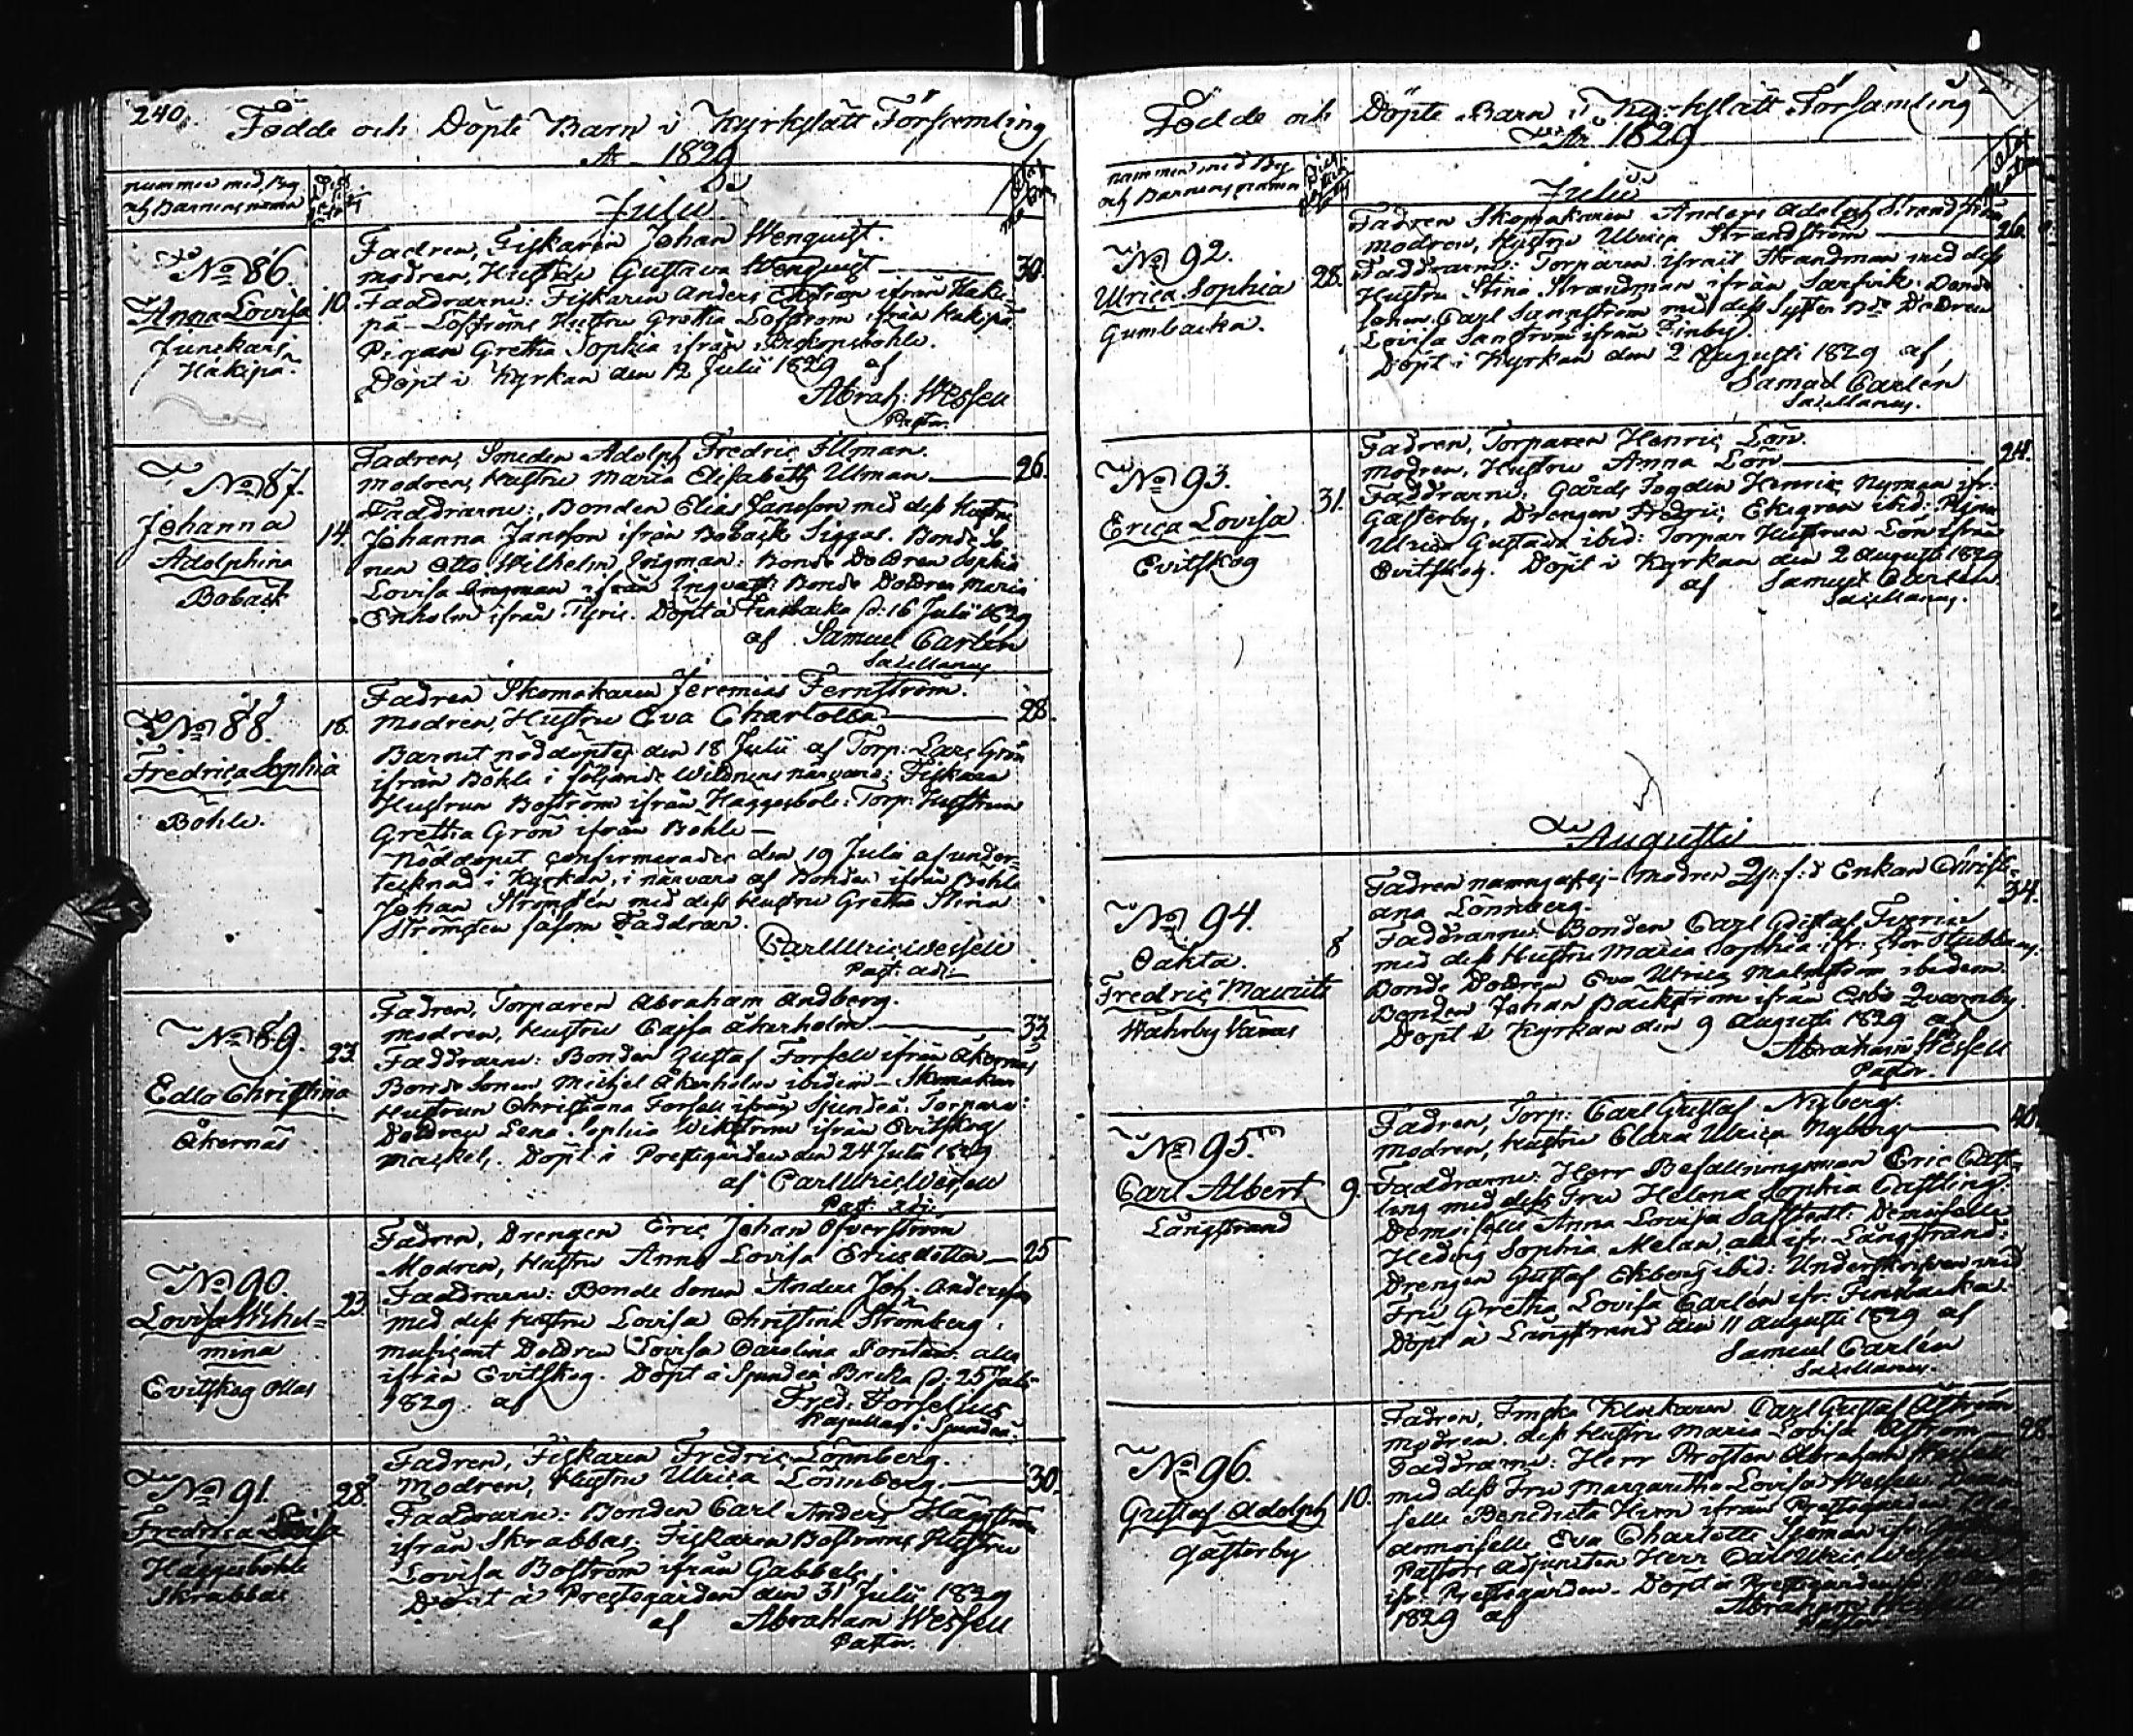 240.
Födde och Döpte Barn i Kyrkslätt Församling
År 1829
nummer med, By
och Barnens namn
Julii
No 86.
Anna Lovisa
Junskars
Håkipä.
10.
Fadren, Fiskaren Johan Wenquist.
modren, Hustru Gustava Wenquist 30.
Faddrarne: Fiskaren Anders Ekström ifrån Haki-
pä - Löfströms Hustru Gretha Löfström ifrån Hakipä
Pigan Gretha Sophia ifrån
Döpt i Kyrkan den 12 Julii 1829 af
Abrah: Wessell
Pastor.
No 87.
Johanna
Adolphina
Boback
14.
Fadren, Smeden Adolph Fredric Illman.
modren, Hustru Maria Elisabeth Ulman 26.
Faddrarne: Bonden Elias Jansson med dess Hustru
Johanna Jansson ifrån Boback Siggas. Bonde So-
nen Otto Wilhelm Ingman: Bonde Dottren Sophia
Lovisa Ingman ifrån Ingvalls: Bonde Dottren Maria
Enholm ifrån Döpt å Finsbacka d: 16 Julii 1829
af Samuel Carlén
Sacellanus
No 88.
Fredrica Sophia
Böhle.
18.
Fadren Skomakaren Jeremias Fernström.
modren, Hustru Eva Charlotta 28.
Barnet nöddöptes den 18 Julii af Torp: Lars Grön
ifrån Böhle i följande Wittnens närvaro: Fiskare
Hustrun Boström ifrån Häggesböle: Torp: Hustrun
Gretha Grön ifrån Böhle —
Nöddopet confirmerades den 19 Julii af under-
tecknad i Kyrkan, i närvaro af Bonden ifrån Böhle
Johan Strömsten med dess Hustru Gretha Stina
Strömsten såsom Faddrar.
Carl Ulric Wessell
Past: adj:
No 89.
Edla Christina
Åkernäs
23.
Fadren, Torparen Abraham Andberg.
modren, Hustru Cajsa Åkerholm. 33
Faddrarne: Bonden Gustaf Forsell ifrån Åkernäs
Bonde Sonen Michel Åkerholm ibidem - Skomakar
Hustrun Christiana Forsell ifrån Sjundeå: Torpare:
Dottren Lena Sophia Wikström ifrån Evitskog
Döpt i Prestgården den 24 Julii 1829
af Carl Ulric Wessell
Past: adj:
No 90.
Lovisa Wilhel-
mina
Evitskog Ollas
23.
Fadren, Drengen Eric Johan Öfverström
Modren, Hustru Anna Lovisa Ericsdotter 25
Faddrarne: Bonde Sonen Anders Joh: Andersson
med dess Hustru Lovisa Christina Strömberg:
musicant Dottren Lovisa Carolina alla
ifrån Evitskog. Döpt å Sjundeå Backa d: 25 Julii
1829 af Fred: Forselius
i Sjundeå.
No 91.
Fredrica Lovisa
Häggesböhle
Skrabbas
28.
Fadren, Fiskaren Fredric Lönnberg.
Modren, Hustru Ulrica Lönnberg. 30.
Faddrarne: Bonden Carl Anders Häggström
ifrån Skrabbas, Fiskaren Boströms Hustru
Lovisa Boström ifrån Gabbels,
Döpt å Prestegården den 31 Julii 1829
af Abraham Wessell
Pastor.
Födde och Döpte Barn i Kyrkslätt Församling
År 1829
nummer med By
och Barnens namn
Julii
No 92.
Ulrica Sophia
Gumbacka.
28.
Fadren Skomakaren Anders Adolph Strandström
modren, Hustru Ulrica Strandström 26.
Faddrarne: Torparen Israel Strandman med dess
Hustru Stina Strandman ifrån Sarfvik: Bonde
sonen Carl Sannström med dess Syster Bde Dottren
Lovisa Sanström ifrån Finby.
Döpt i Kyrkan den 2 Augusti 1829 af
Samuel Carlén
Sacellanus.
No 93.
Erica Lovisa
Evitskog
31.
Fadren, Torparen Henric Lön.
modren, Hustru Anna Lön 24.
Faddrarne: Gårds Fogden Henric Nyman ifr:
Gästerby, Drengen Fredric Ekegren ibid: Pigan
Ulrica Gustava ibid: Torpar Hustrun Lön ifrån
Evitskog. Döpt i Kyrkan den 2 Augusti 1829
af Samuel Carlén
Sacellanus.
Augusti
No 94.
Oäkta.
Fredric Maurits
8
Fadren namngafs ej - Modren Enkan Christi-
ana Lönnberg. 34.
Faddrarne: Bonden Carl Gustaf
med dess Hustru Maria Sophia ifr: Stor
Bonde Dottren Eva Ulrica Malmström ibidem.
Bonden Johan Bäckström ifrån Esbo Qvarnby.
Döpt i Kyrkan den 9 Augusti 1829 af
Abraham Wessell
Pastor.
No 95.
Carl Albert
Långstrand
9.
Fadren, Torp: Carl Gustaf Nyberg.
modren, Hustru Clara Ulrica Nyberg 40.
Faddrarne: Herr Befallningsman Eric Cast-
ling med dess Fru Helena Sophia Castling:
Demoiselle Anna Lovisa Demoiselle
Hedvig Sophia Melan, alla ifr: Långstrand:
Drengen Gustaf Ekberg ibid: Underskrifven med
Fru Gretha Lovisa Carlén ifr: Finsbacka.
Döpt å Långstrand den 11 Augusti 1829 af
Samuel Carlén
Sacellanus.
No 96.
Gustaf Adolph
Gästerby
10.
Fadren, Klockaren Carl Gustaf Åström
modren dess Hustru Maria Lovisa Åström 28.
Faddrarne: Herr Prosten Abraham Wessell
med dess Fru Margaretha Lovisa Wessell
selle Benedicta Hirn ifrån Prestegården
demoiselle Eva Charlotte
Pastors adjuncten Herr Carl Ulric Wessell
ifr: Prestegården. Döpt å Prestegården
1829 af Abraham Wessell
Pastor.